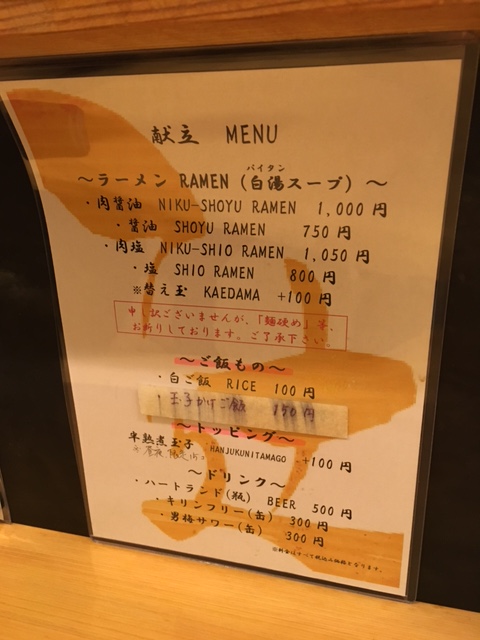 献立 MENU
～ラーメン RAMEN (白湯スープ) ～
パイタン
・肉醤油 NIKU-SHOYU RAMEN 1,000 円
・醤油 SHOYU RAMEN 750 円
・肉塩 NIKU-SHIO RAMEN 1,050 円
・塩 SHIO RAMEN 800 円
※替え玉 KAEDAMA +100 円
申し訳ございませんが、「麺硬め」等、
お断りしております。ご了承下さい。
～ご飯もの～
・白ご飯 RICE 100 円
・玉子かけご飯 150円
～トッピング～
半熟煮玉子 HANJUKUNITAMAGO +100 円
～ドリンク～
・ハートランド(瓶) BEER 500 円
・キリンフリー(缶) 300 円
・男梅サワー(缶) 300 円
※料金はすべて税込み価格となります。